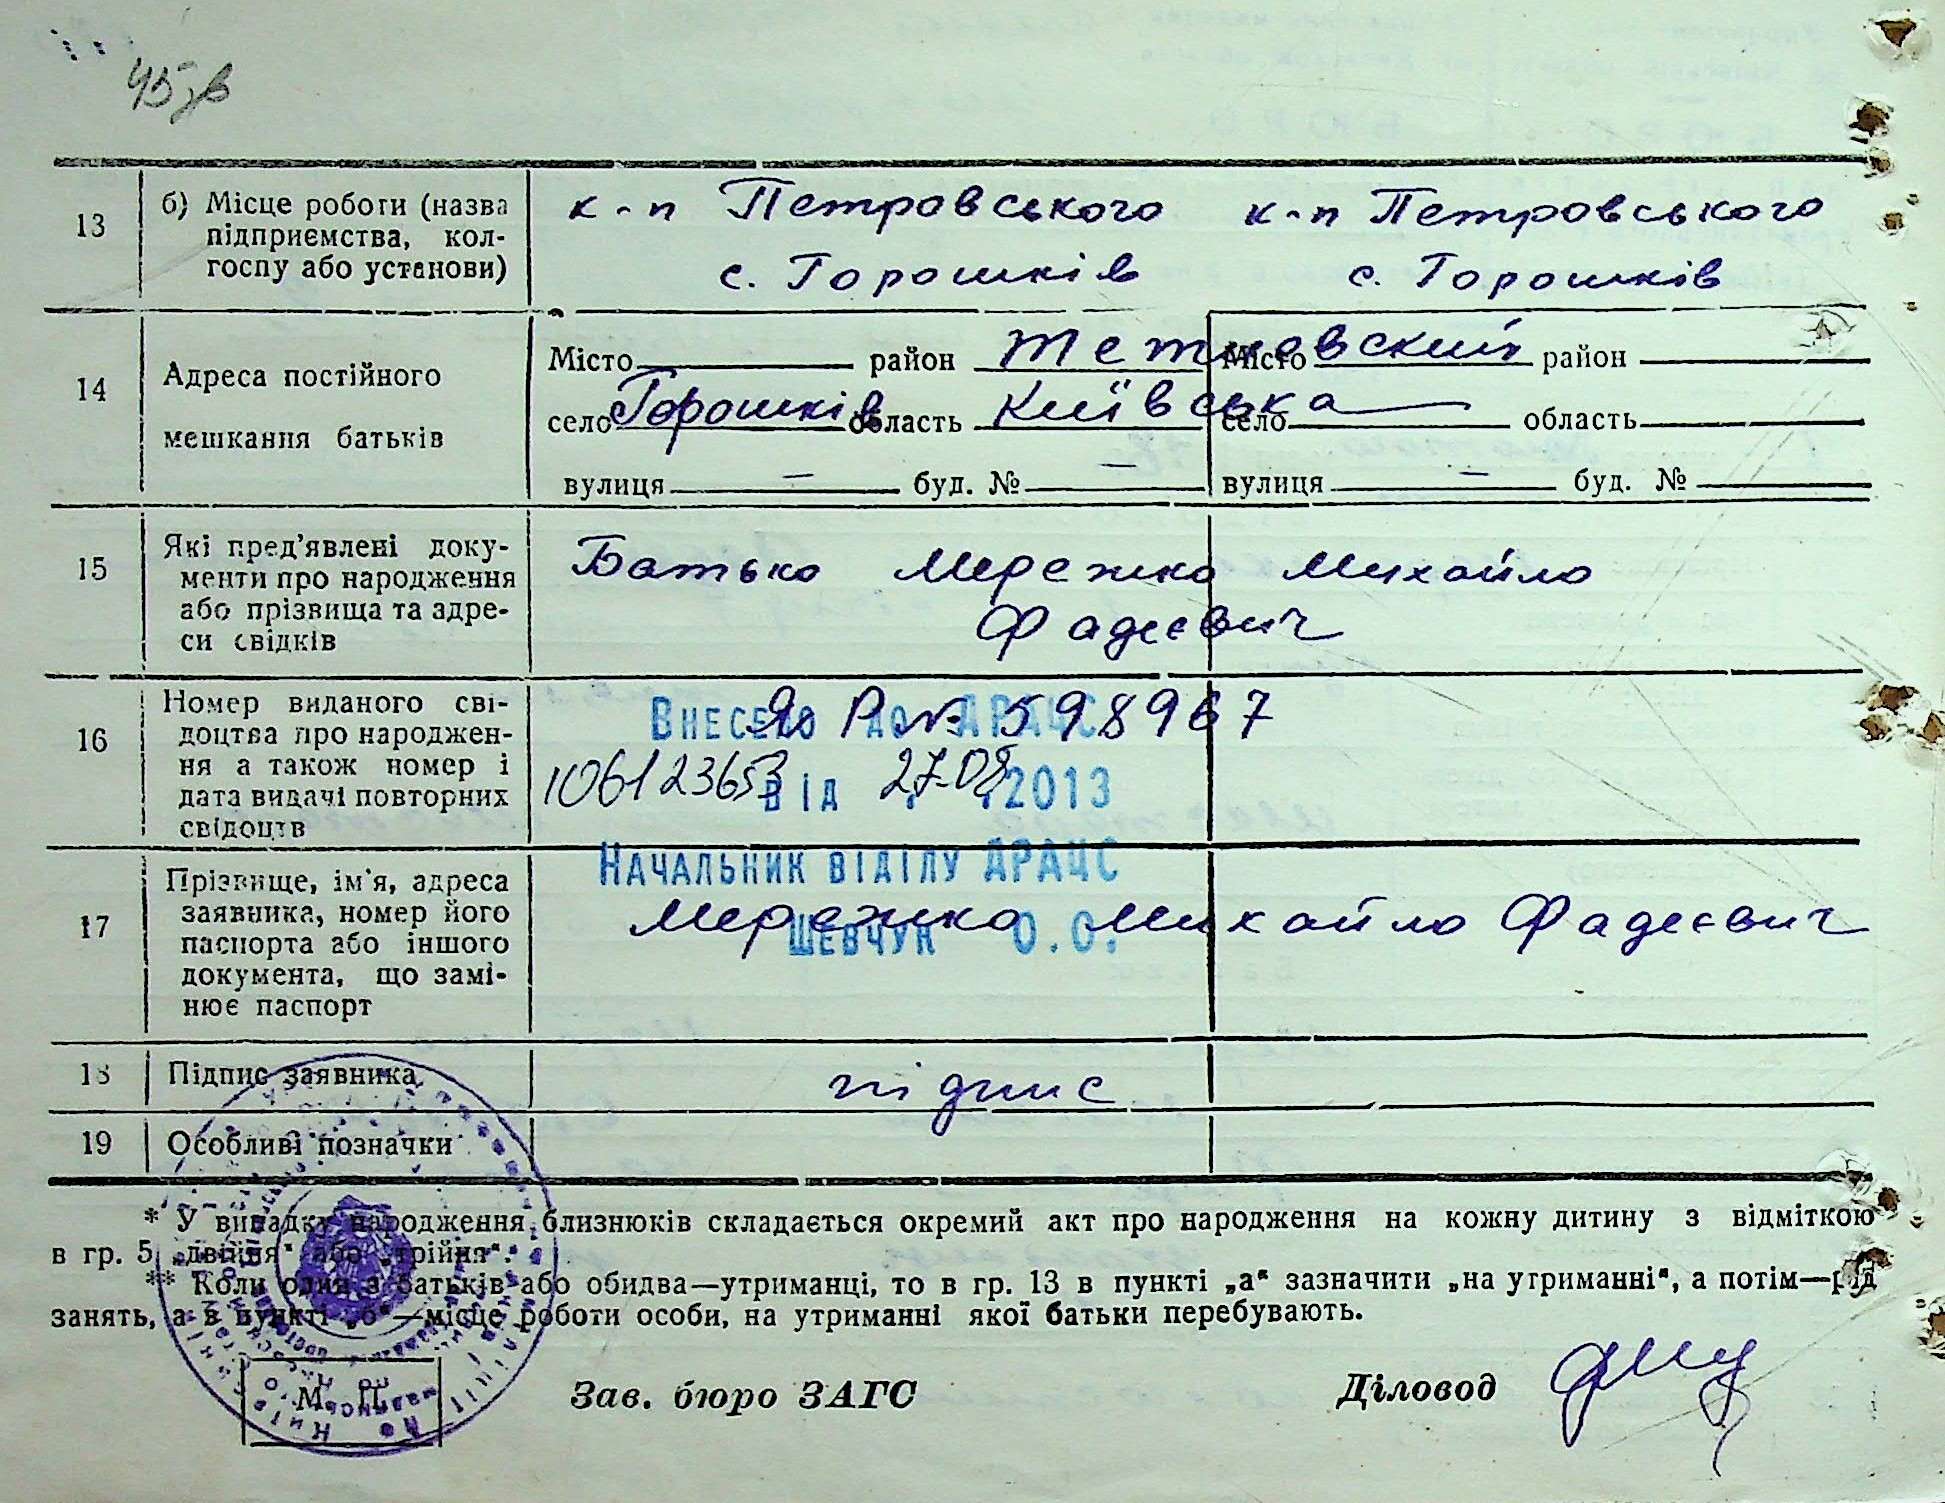 45 зв
13
б) Місце роботи (назва
підприємства, кол-
госпу або установи)
к-п Петровського
с. Горошків
к-п Петровського
с. Горошків
14
Адреса постійного
мешкання батьків
Місто район Тетиевский
село Горошків область Київська
вулиця — буд. № —
Місто район
село область
вулиця — буд. №
15
Які пред'явлені доку-
менти про народження
або прізвища та адре-
си свідків
Батько Мережко Михайло
Фадеєвич
16
Номер виданого сві-
доцтва про народжен-
ня а також номер і
дата видачі повторних
свідоцтв
Р № 598967
Внесено до ДРАЦС
106123653 від 27.08.2013
Начальник відділу ДРАЦС
Шевчук О.О.
17
Прізвище, ім'я, адреса
заявника, номер його
паспорта або іншого
документа, що замі-
нює паспорт
Мережко Михайло Фадеєвич
18
Підпис заявника
підпис
19
Особливі позначки
* У випадку народження близнюків складається окремий акт про народження на кожну дитину з відміткою
в гр. 5 „двійня“ або „трійня“.
** Коли один з батьків або обидва—утриманці, то в гр. 13 в пункті „а“ зазначити „на утриманні“, а потім—рід
занять, а в пункті „б“—місце роботи особи, на утриманні якої батьки перебувають.
М. П.
Зав. бюро ЗАГС
Діловод